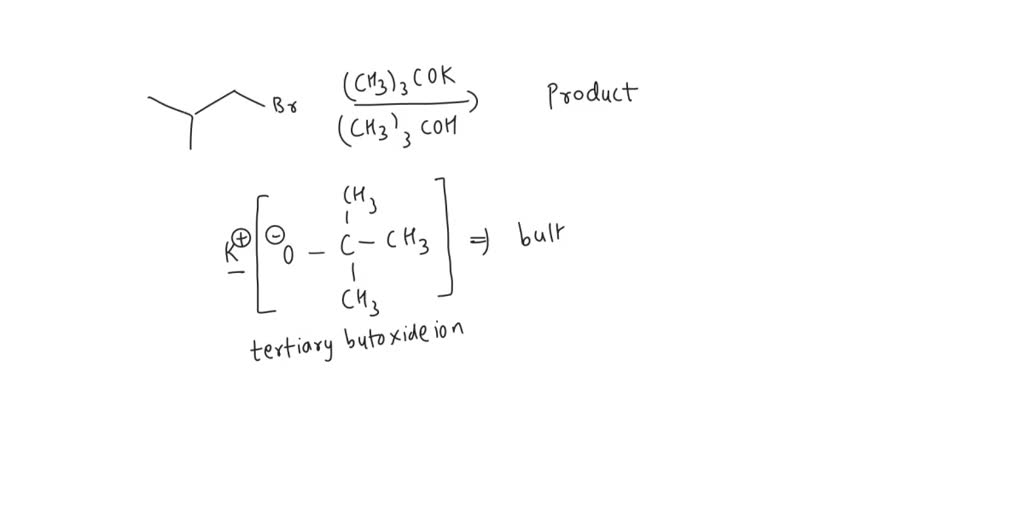 Br
(CH3)3COK
(CH3)3COH
Product
CH3
K⊕ ⊖O – C – CH3 ⇒ bulk
CH3
tertiary butoxide ion